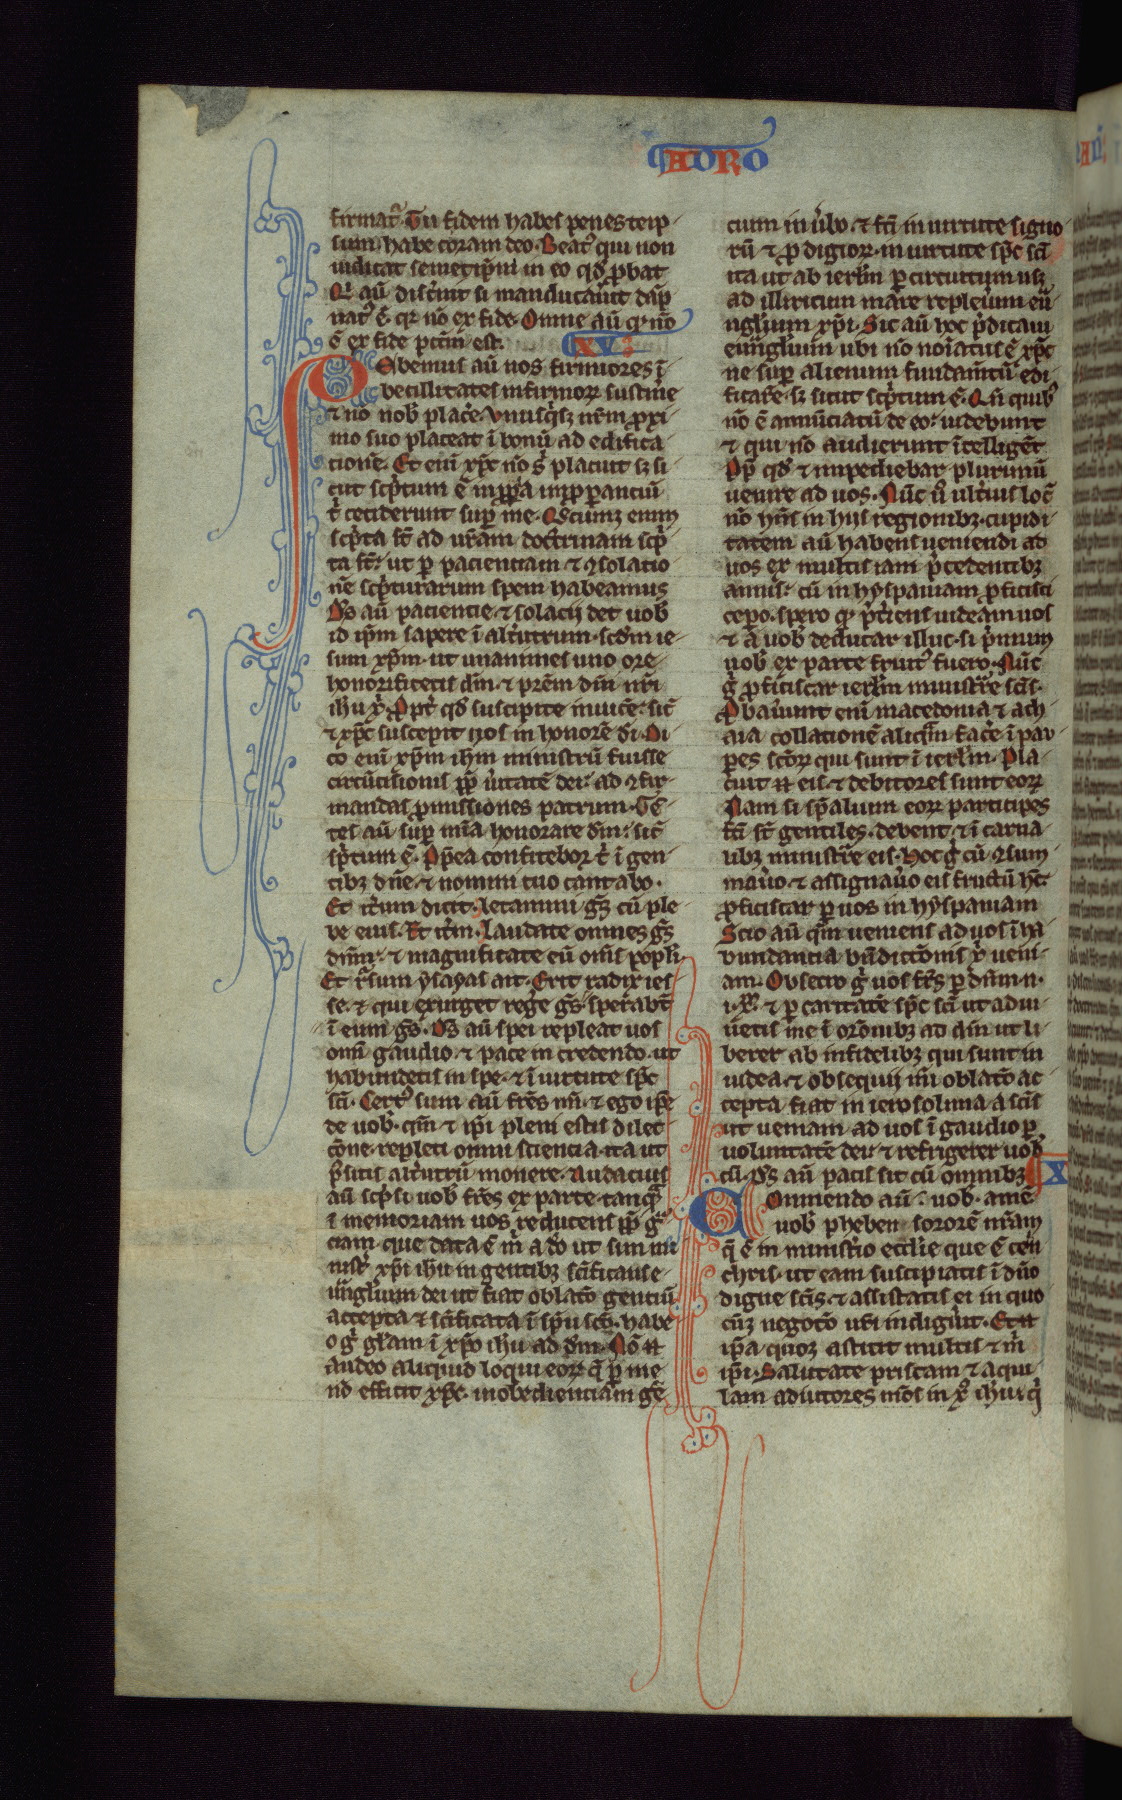 AD RO
firmat᷑. Tu fidem habes penes teip
sum. habe coram deo. Beat᷒ qui non
iudicat semetip̄m in eo qd̓ ꝓbat
Qi aū discͥnit si manducaūit dāp
nat᷒ ē. qꝛ nō ex fide. Omne aū qꝫ nō
ē ex fide pctm̄ est. XV
Debemus aū nos firmiores ī
becillitates infirmoꝝ sustin̄e
⁊ nō nob̓ plac̄e. Vnusqͥsqꝫ nr̄m ꝓxi
mo suo placeat ī bonū ad edifica
tionē. Et eni᷑ xp̄c nō s᷑ placuit sꝫ si
cut scͥptum ē inꝓꝑia inꝓꝑantiū
t᷑ ceciderunt suꝑ me. Qecumqꝫ enim
scͥpta st̄ ad nr̄am doctrinam scͥp
ta st̄. ut ꝑ pacientiam ⁊ ꝯsolatio
nē scͥpturarum spem habeamus
Ds̄ aū pacientie ⁊ solacij det uob̓
id ip̄m sapere ī altͥutrum. scd̄m ie
sum xp̄m. ut unanimes uno ore
honorificetis dm̄. ⁊ prēm dn̄i nr̄i
ihū x᷑. Ꝓpt᷑ qd̓ suscipite inuicē. sic̄
⁊ xp̄c suscepit uos in honorē di᷑. Di
co eni᷑ xp̄m ihm̄ ministrū fuisse
circūcisionis ꝓꝑ ūitatē dei. ad ꝯfir
mandas ꝓmissiones patrum. Gē
tes aū suꝑ mīa honorare dm̄. sic̄
scͥptum ē. Ꝓꝑea confitebor t᷑ ī gen
tibꝫ dn̄e. ⁊ nomini tuo cantabo.
Et it᷑um dicit. letamini gn̄s cū ple
be eius. Et it᷑m. Laudate omnes gn̄s
dnm̄. ⁊ magnificate eū om̄s popłi.
Et rͬsum ysayas ait. Erit radix ies
se. ⁊ qui exurget reg̓e gn̄s. sperabt̄
ī eum gn̄s. Ds̄ aū spei repleat uos
om̄i gaudio ⁊ pace in credendo. ut
habundetis in spe. ⁊ ī uirtute sp̄c
sc̄i. Cert᷒ sum aū fr̄es mi᷑. ⁊ ego ip̄e
de uob̓. qm̄ ⁊ ip̄i pleni estis dilec
tōne. repleti omni sciencia. ita ut
pͦssitis altͥutrū monere. Audacius
aū scͥpsi uob̓ fr̄es ex parte. tanqͣ
ī memoriam uos reducens ꝓꝑ grͣ
ciam. que data ē m᷑ a do̓ ut sim mi
nistͥ xp̄i ihū in gentibꝫ sc̄ificans e
uͣnglium dei ut fiat oblatō gentiū
accepta ⁊ sc̄ificata ī sp̄u sco̓. habe
o g᷑ glam̄ ī xp̄o ihū ad dm̄. Nō n̄
audeo aliquid loqui eoꝝ q̄ ꝑ me
nō efficit xp̄c. in obedienciam gē
cium in ūbo. ⁊ fc̄i᷑ in uirtute signo
rū ⁊ ꝓdigioꝝ. in uirtute sp̄c sc̄i
ita ut ab ierłm ꝑ circuitum usqꝫ
ad illiricum mare repleūim eū
nglium xp̄i. Sic aū hoc p̄dicaui
euͣnglium ubi nō noīatus ē xp̄c
ne suꝑ alienum fundam̄tū edi
ficar̄e. sꝫ sicut scͥptum ē. Qn̄ quib᷒
nō ē annūciatū de eo. uidebunt
⁊ qui nō audierunt ītelligēt
Ꝓꝑ qd̓ ⁊ impediebar plurimū
uenire ad uos. Nūc ū ulterius loc̄
nō hn̄s in hijs regionibꝫ. cupidi
tatem aū habens ueniendi ad
uos ex multis iam p̄cedentibꝫ
annis. cū in hyspaniam ꝓficisci
cepo. spero qꝫ p̄tͥiens uideam uos
⁊ a uob̓ deducar illuc. si pͥmum
uob̓ ex parte fruit᷒ fuero. Nūc
g᷑ ꝓficiscar ierłm ministr̄e scīs.
Probaūunt eni᷑ macedonia ⁊ ach
aia collationē aliqͣm fac̄e ī pau
ꝑes scōꝝ qui sunt ī ierłm. Pla
cuit n̄ eis. ⁊ debitores sunt eoꝝ
Nam si sp̄alium eoꝝ participes
fc̄i st̄ gentiles. debent ⁊ ī carna
libꝫ ministr̄e eis. Hoc g᷑ cū ꝯsum
maūo ⁊ assignaūo eis fructū hc̄.
ꝓficiscar ꝑ uos in hyspaniam
Scio aū qm̄ ueniens ad uos ī ha
bundantia bn̄dictōnis x᷑ ueni
am. Obsecro g᷑ uos fr̄es ꝑ dnm̄ n.
i. x᷑. ⁊ ꝑ caritatē sp̄c sc̄i ut adiu
uetis me ī orōnibꝫ ad dm̄ ut li
berer ab infidelibꝫ qui sunt in
iudea. ⁊ obsequij mi᷑ oblatō ac
cepta fiat in ierosolima a scīs
ut ueniam ad uos ī gaudio ꝑ
uoluntatē dei ⁊ refrigerer uob̓
cū. Ds̄ aū pacis sit cū omnibꝫ X
Commendo aū uob̓. amē.
uob̓ pheben sororē nr̄am
q̄ ē in ministͥo ecclie que ē cen
chris. ut eam suscipiatis ī dn̄o
digne scīs. ⁊ assistatis ei in quo
cūqꝫ negotō ur̄i indigūit. Et n̄
ip̄a quoqꝫ astitit multis ⁊ m᷑
ip̄i. Salutate priscam ⁊ aqui
lam adiutores mōs in x᷑o ihū. qͥ